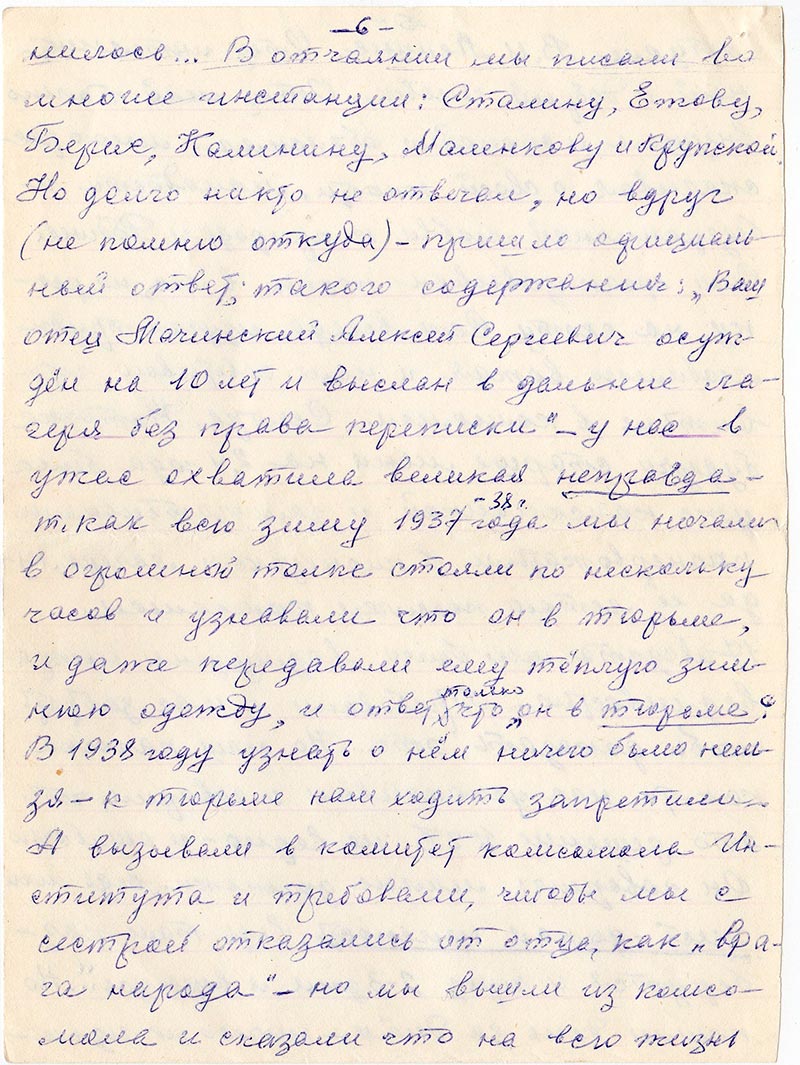 -6-
нилось... В отчаянии мы писали во
многие инстанции: Сталину, Ежову,
Берие, Калинину, Маленкову и Крупской.
Но долго никто не отвечал, но вдруг
(не помню откуда) - пришло официаль-
ный ответ, такого содержания: „Ваш
отец Мачинский Алексей Сергеевич осуж-
дён на 10 лет и выслан в дальние ла-
геря без права переписки" - у нас в
ужас охватила великая неправда -
- 38 г.
т. как всю зиму 1937 года мы ночами
в огромной толпе стояли по нескольку
часов и узнавали что он в тюрьме,
и даже передавали ему тёплую зим-
только
нюю одежду, и ответ что „он в тюрьме".
В 1938 году узнать о нём ничего было нель-
зя - к тюрьме нам ходить запретили.
А вызывали в комитет комсомола Ин-
ститута и требовали, чтобы мы с
сестрой отказались от отца, как „вра-
га народа" - но мы вышли из комсо-
мола и сказали что на всю жизнь